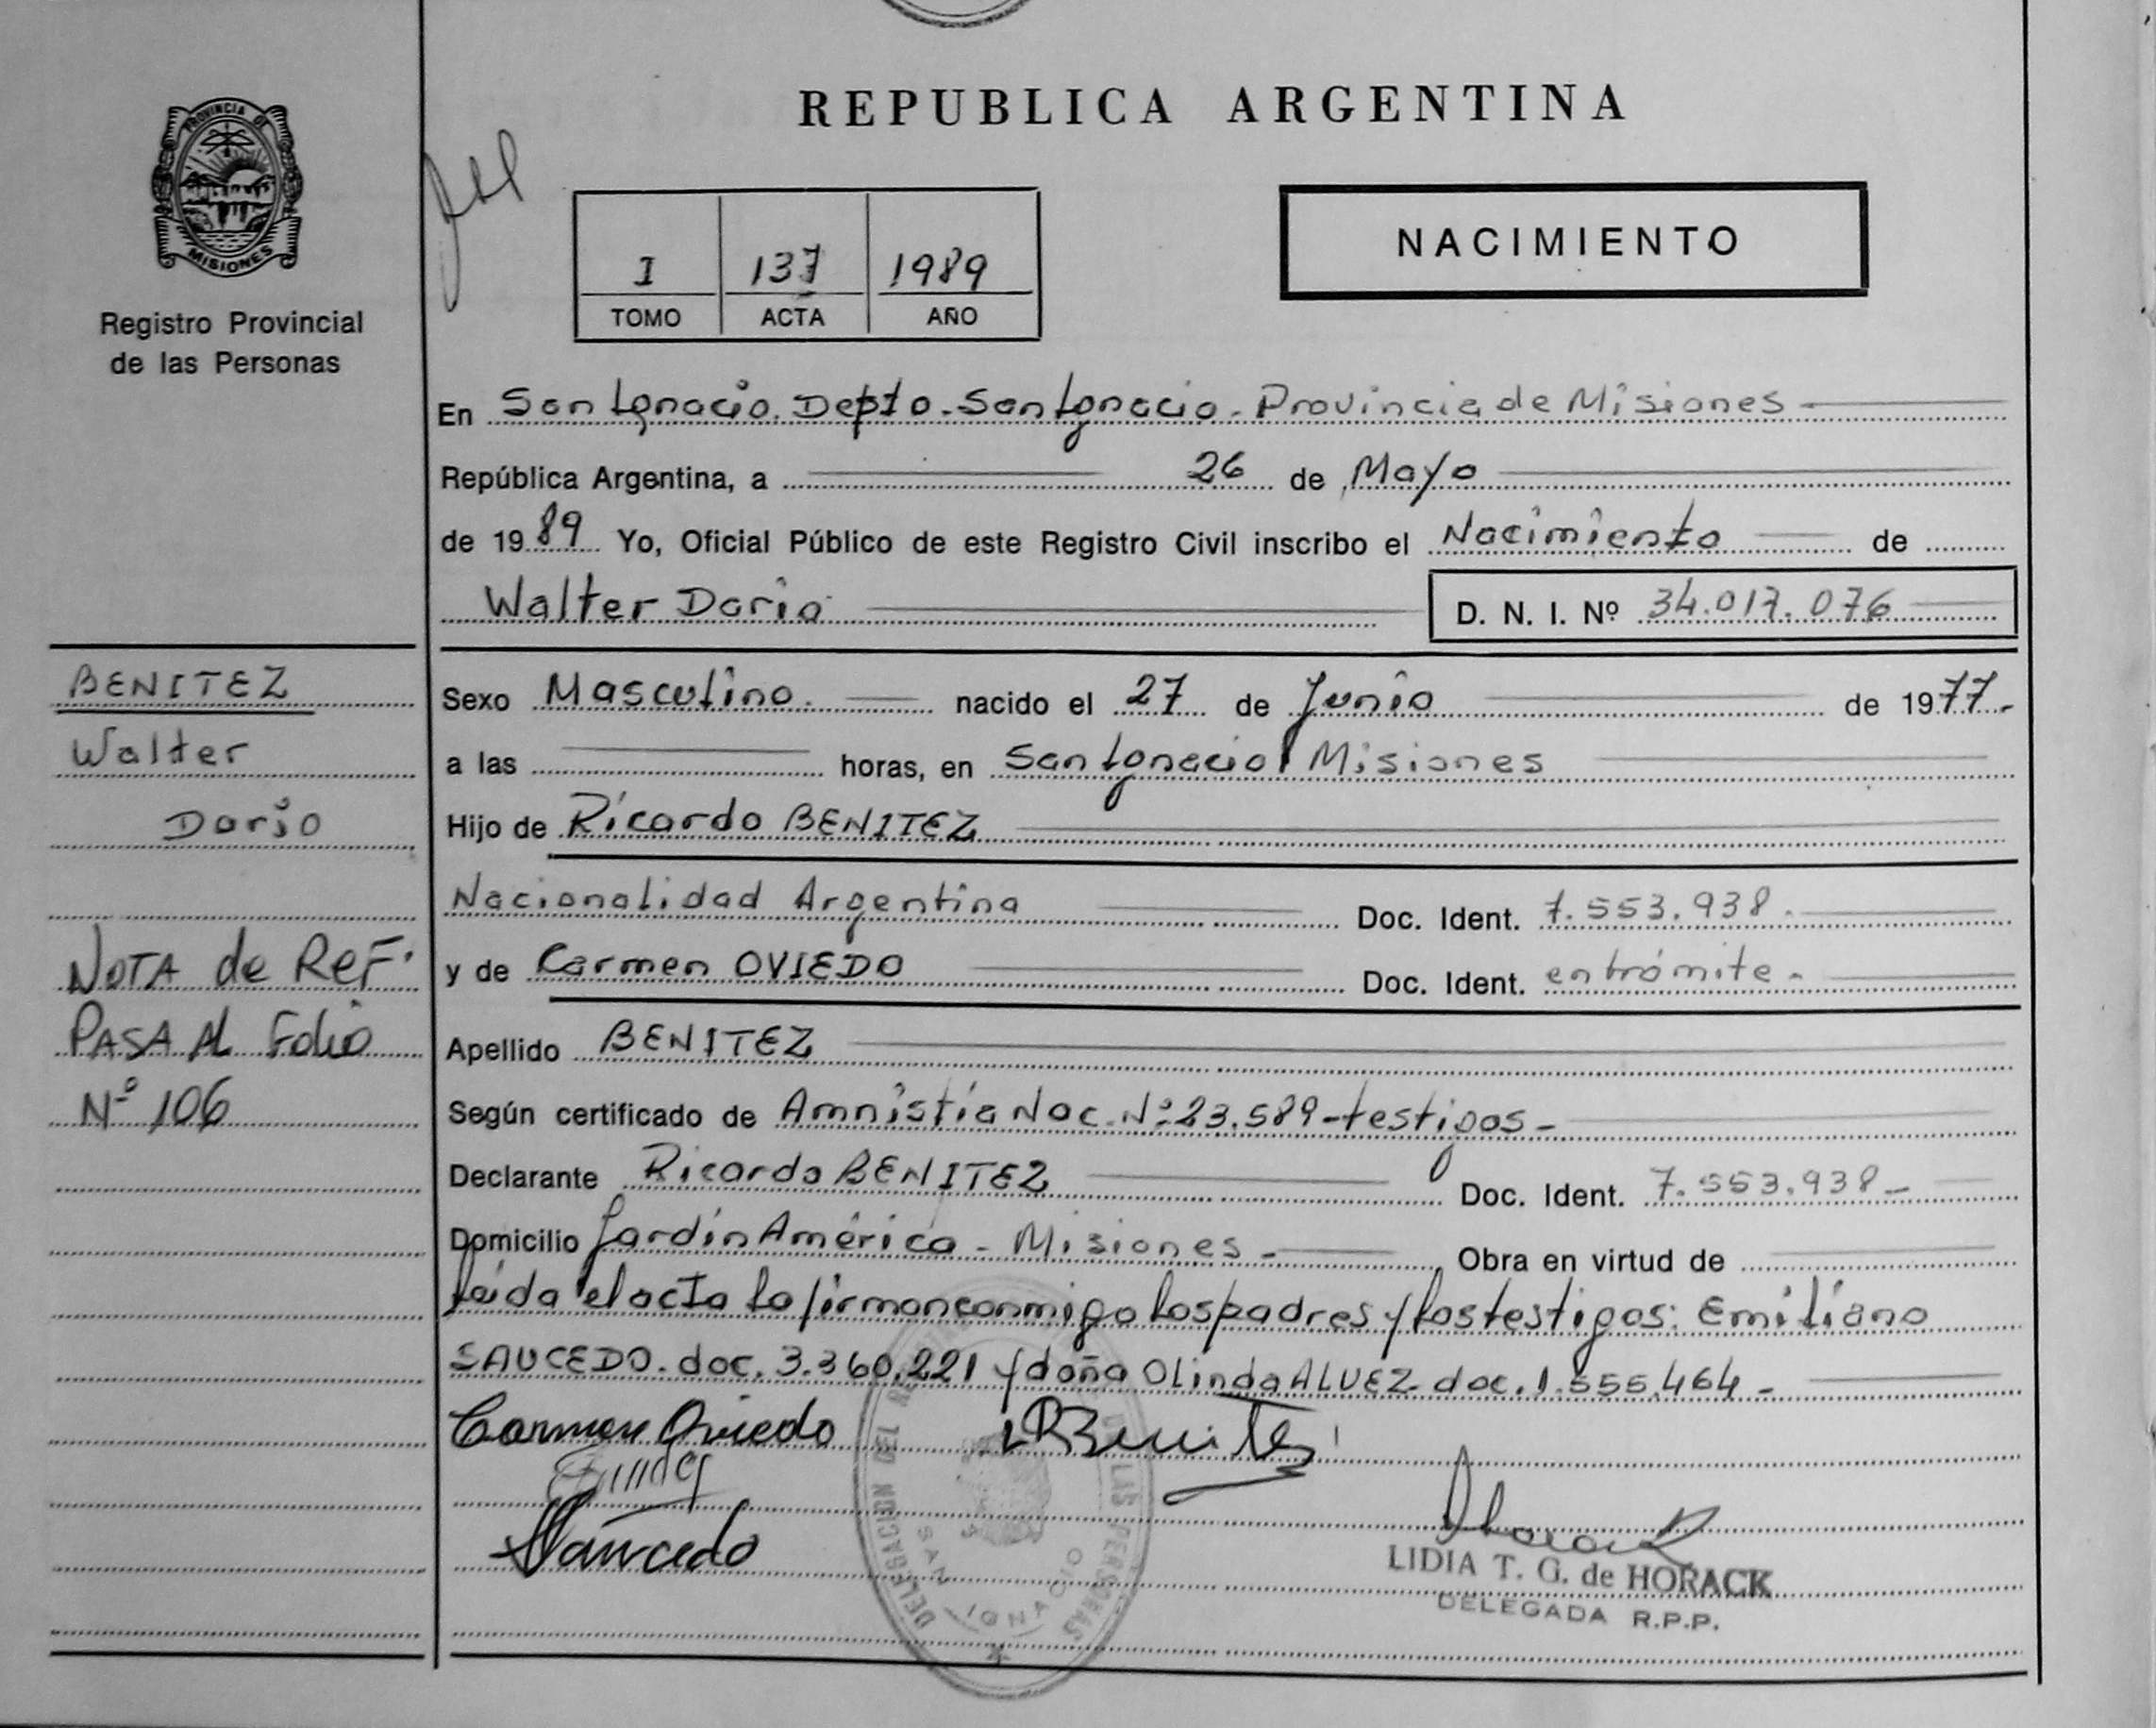 REPUBLICA ARGENTINA
PROVINCIA DE
MISIONES
Registro Provincial
de las Personas
I 137 1989
TOMO ACTA AÑO
NACIMIENTO
En San Ignacio. Depto. San Ignacio. Provincia de Misiones
República Argentina, a 26 de Mayo
de 1989 Yo, Oficial Público de este Registro Civil inscribo el Nacimiento de
Walter Dario D. N. I. Nº 34.017.076
BENITEZ
Walter
Dario
NOTA de REF.
PASA AL Folio
Nº 106
Sexo Masculino. nacido el 27 de Junio de 1977.
a las horas, en San Ignacio Misiones
Hijo de Ricardo BENITEZ
Nacionalidad Argentina Doc. Ident. 7.553.938.
y de Carmen OVIEDO Doc. Ident. en trámite.
Apellido BENITEZ
Según certificado de Amnistía Nac. Nº 23.589-testigos-
Declarante Ricardo BENITEZ Doc. Ident. 7.553.938-
Domicilio Jardín América - Misiones - Obra en virtud de
Leída el acta la firman conmigo los padres y los testigos: Emiliano
SAUCEDO. doc. 3.360.221 y doña Olinda ALVEZ doc. 1.555.464-
Carmen Oviedo RBenitez
Saucedo
LIDIA T. G. de HORACK
DELEGADA R.P.P.
DELEGACION DEL LAS PERSONAS
SAN IGNACIO